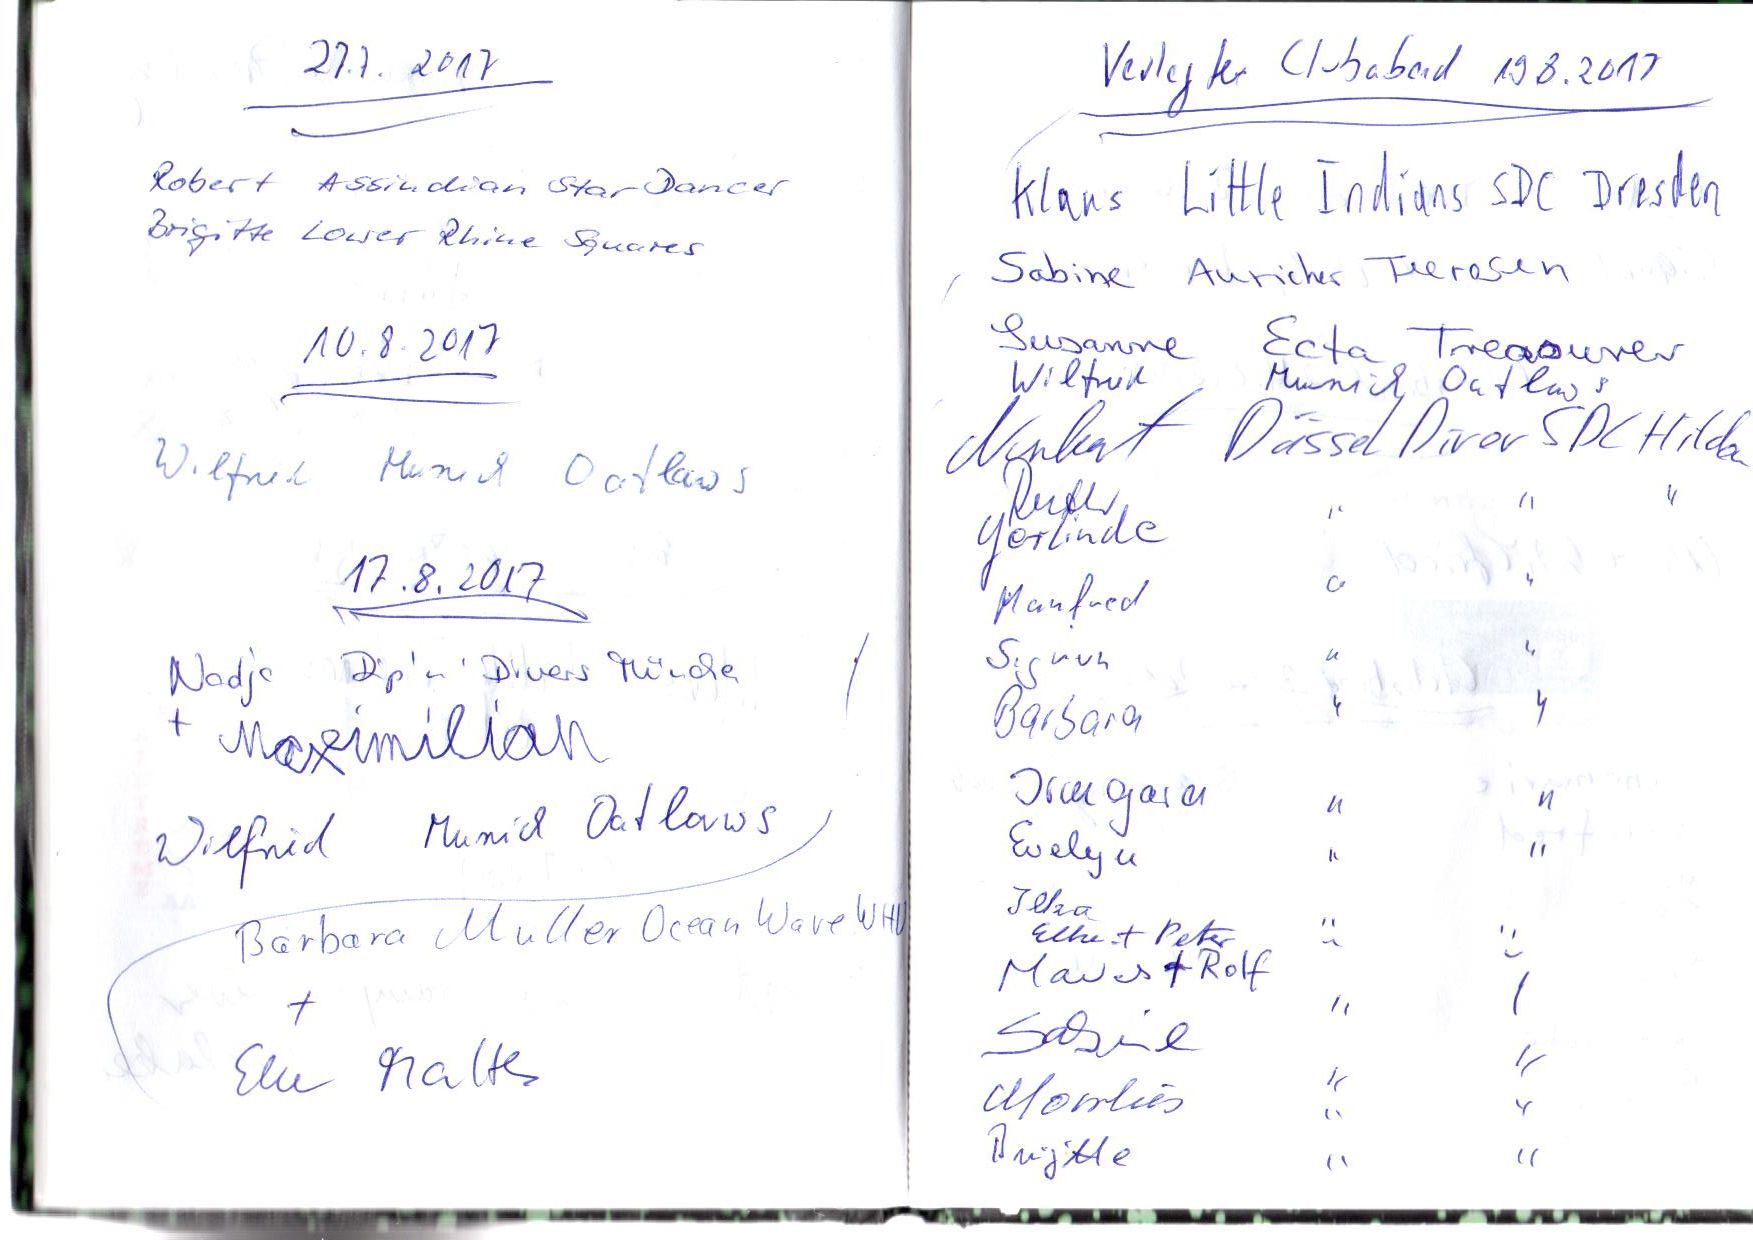 27.7. 2017
Robert Assindian Star Dancer
Brigitte Lower Rhine Squares
10.8.2017
Wilfried Munich Outlaws
17.8.2017
Nadja Dip'n' Divers München
+ Maximilian
Wilfried Munich Outlaws
Barbara Muller Ocean Wave WHV
+
Elke Malte
Verlegter Clubabend 19.8.2017
Klaus Little Indians SDC Dresden
Sabine Auricher Teerosen
Susanne Ecta Treasurer
Wilfried Munich Outlaws
Dassel Diver SDC Hilden
" " "
Gerlinde
Manfred " "
Sigrun " "
Barbara " "
Irmgard " "
Evelyn " "
Ilka
Elke + Peter " "
+ Rolf
" "
Sabine "
Marlies " "
" "
Brigitte " "